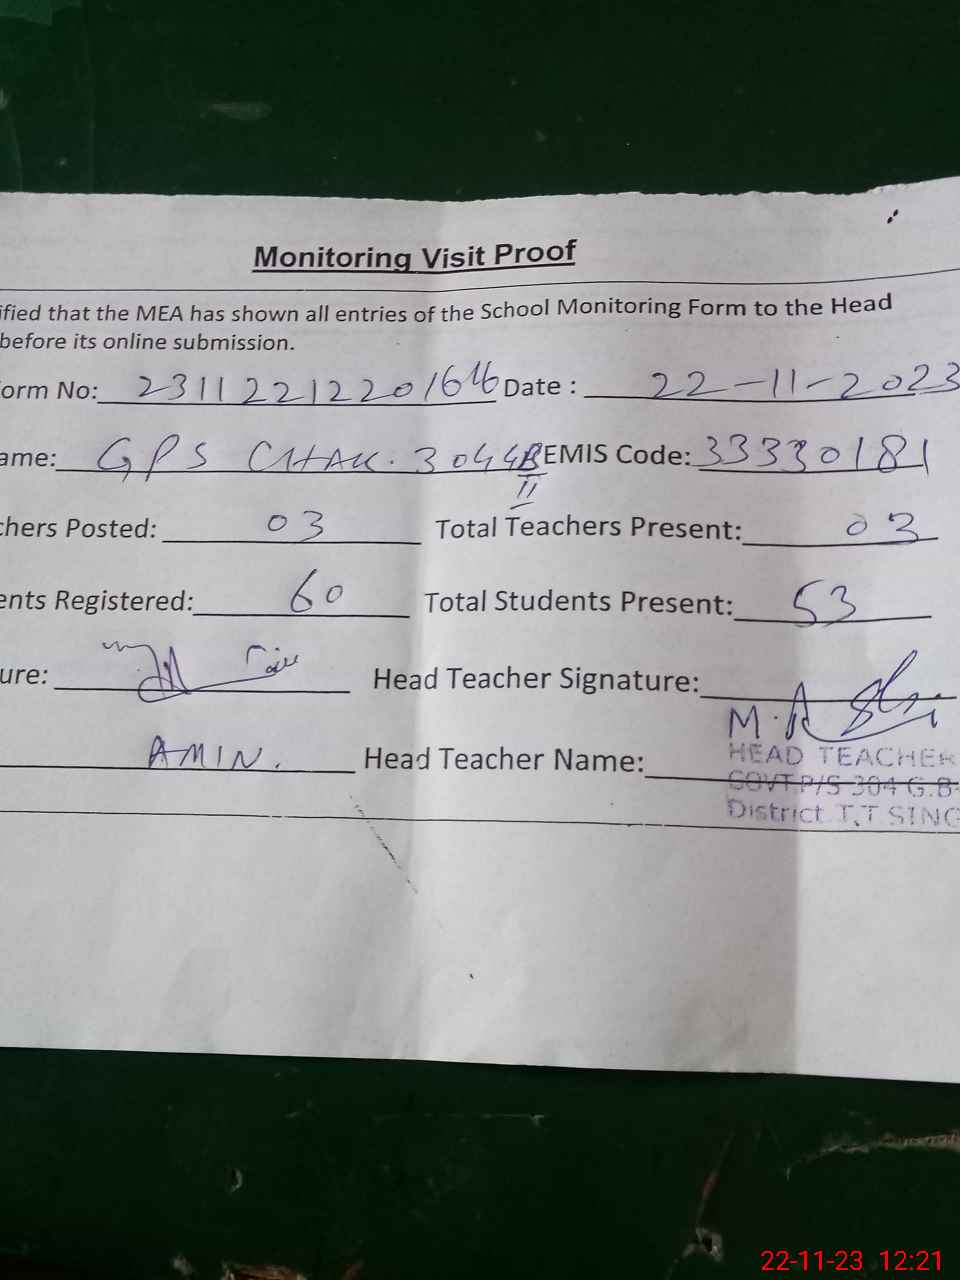 Monitoring Visit Proof
ified that the MEA has shown all entries of the School Monitoring Form to the Head
before its online submission.
orm No: 231122122201646 Date : 22-11-2023
ame: GPS CHAK. 304GB II EMIS Code: 33330181
chers Posted: 03 Total Teachers Present: 03
ents Registered: 60 Total Students Present: 53
ure: Head Teacher Signature:
AMIN. Head Teacher Name:
HEAD TEACHER
GOVT.P/S 304 G.B-
District T.T SING
22-11-23 12:21